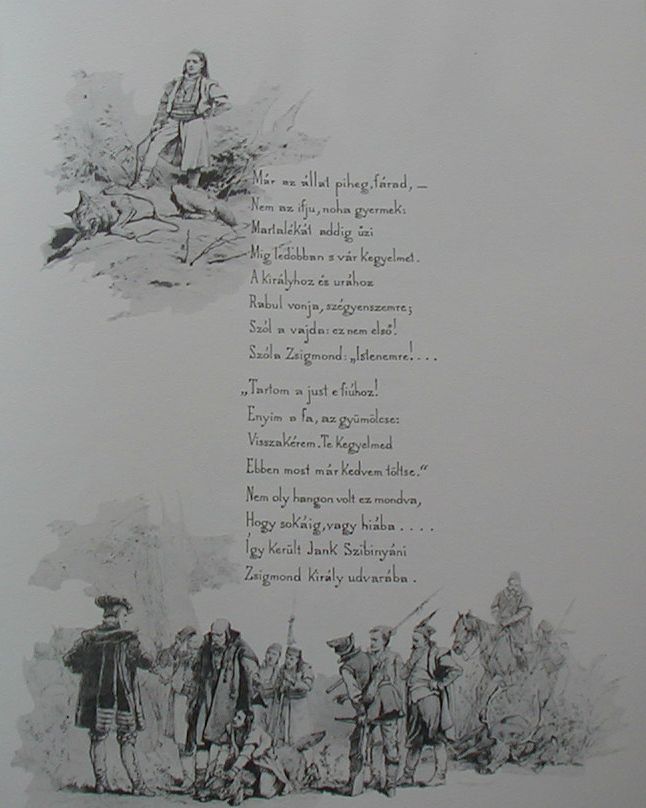 Már az állat piheg, fárad, —
Nem az ifju, noha gyermek:
Martalékát addig űzi
Mig ledobban s vár kegyelmet.
A királyhoz és urához
Rabul vonja, szégyenszemre;
Szól a vajda: ez nem első!
Szóla Zsigmond: „Istenemre!...
„Tartom a just e fiúhoz!
Enyim a fa, az gyümölcse:
Visszakérem. Te kegyelmed
Ebben most már kedvem töltse.“
Nem oly hangon volt ez mondva,
Hogy sokáig, vagy hiába ....
Így került Jank Szibinyáni
Zsigmond király udvarába.